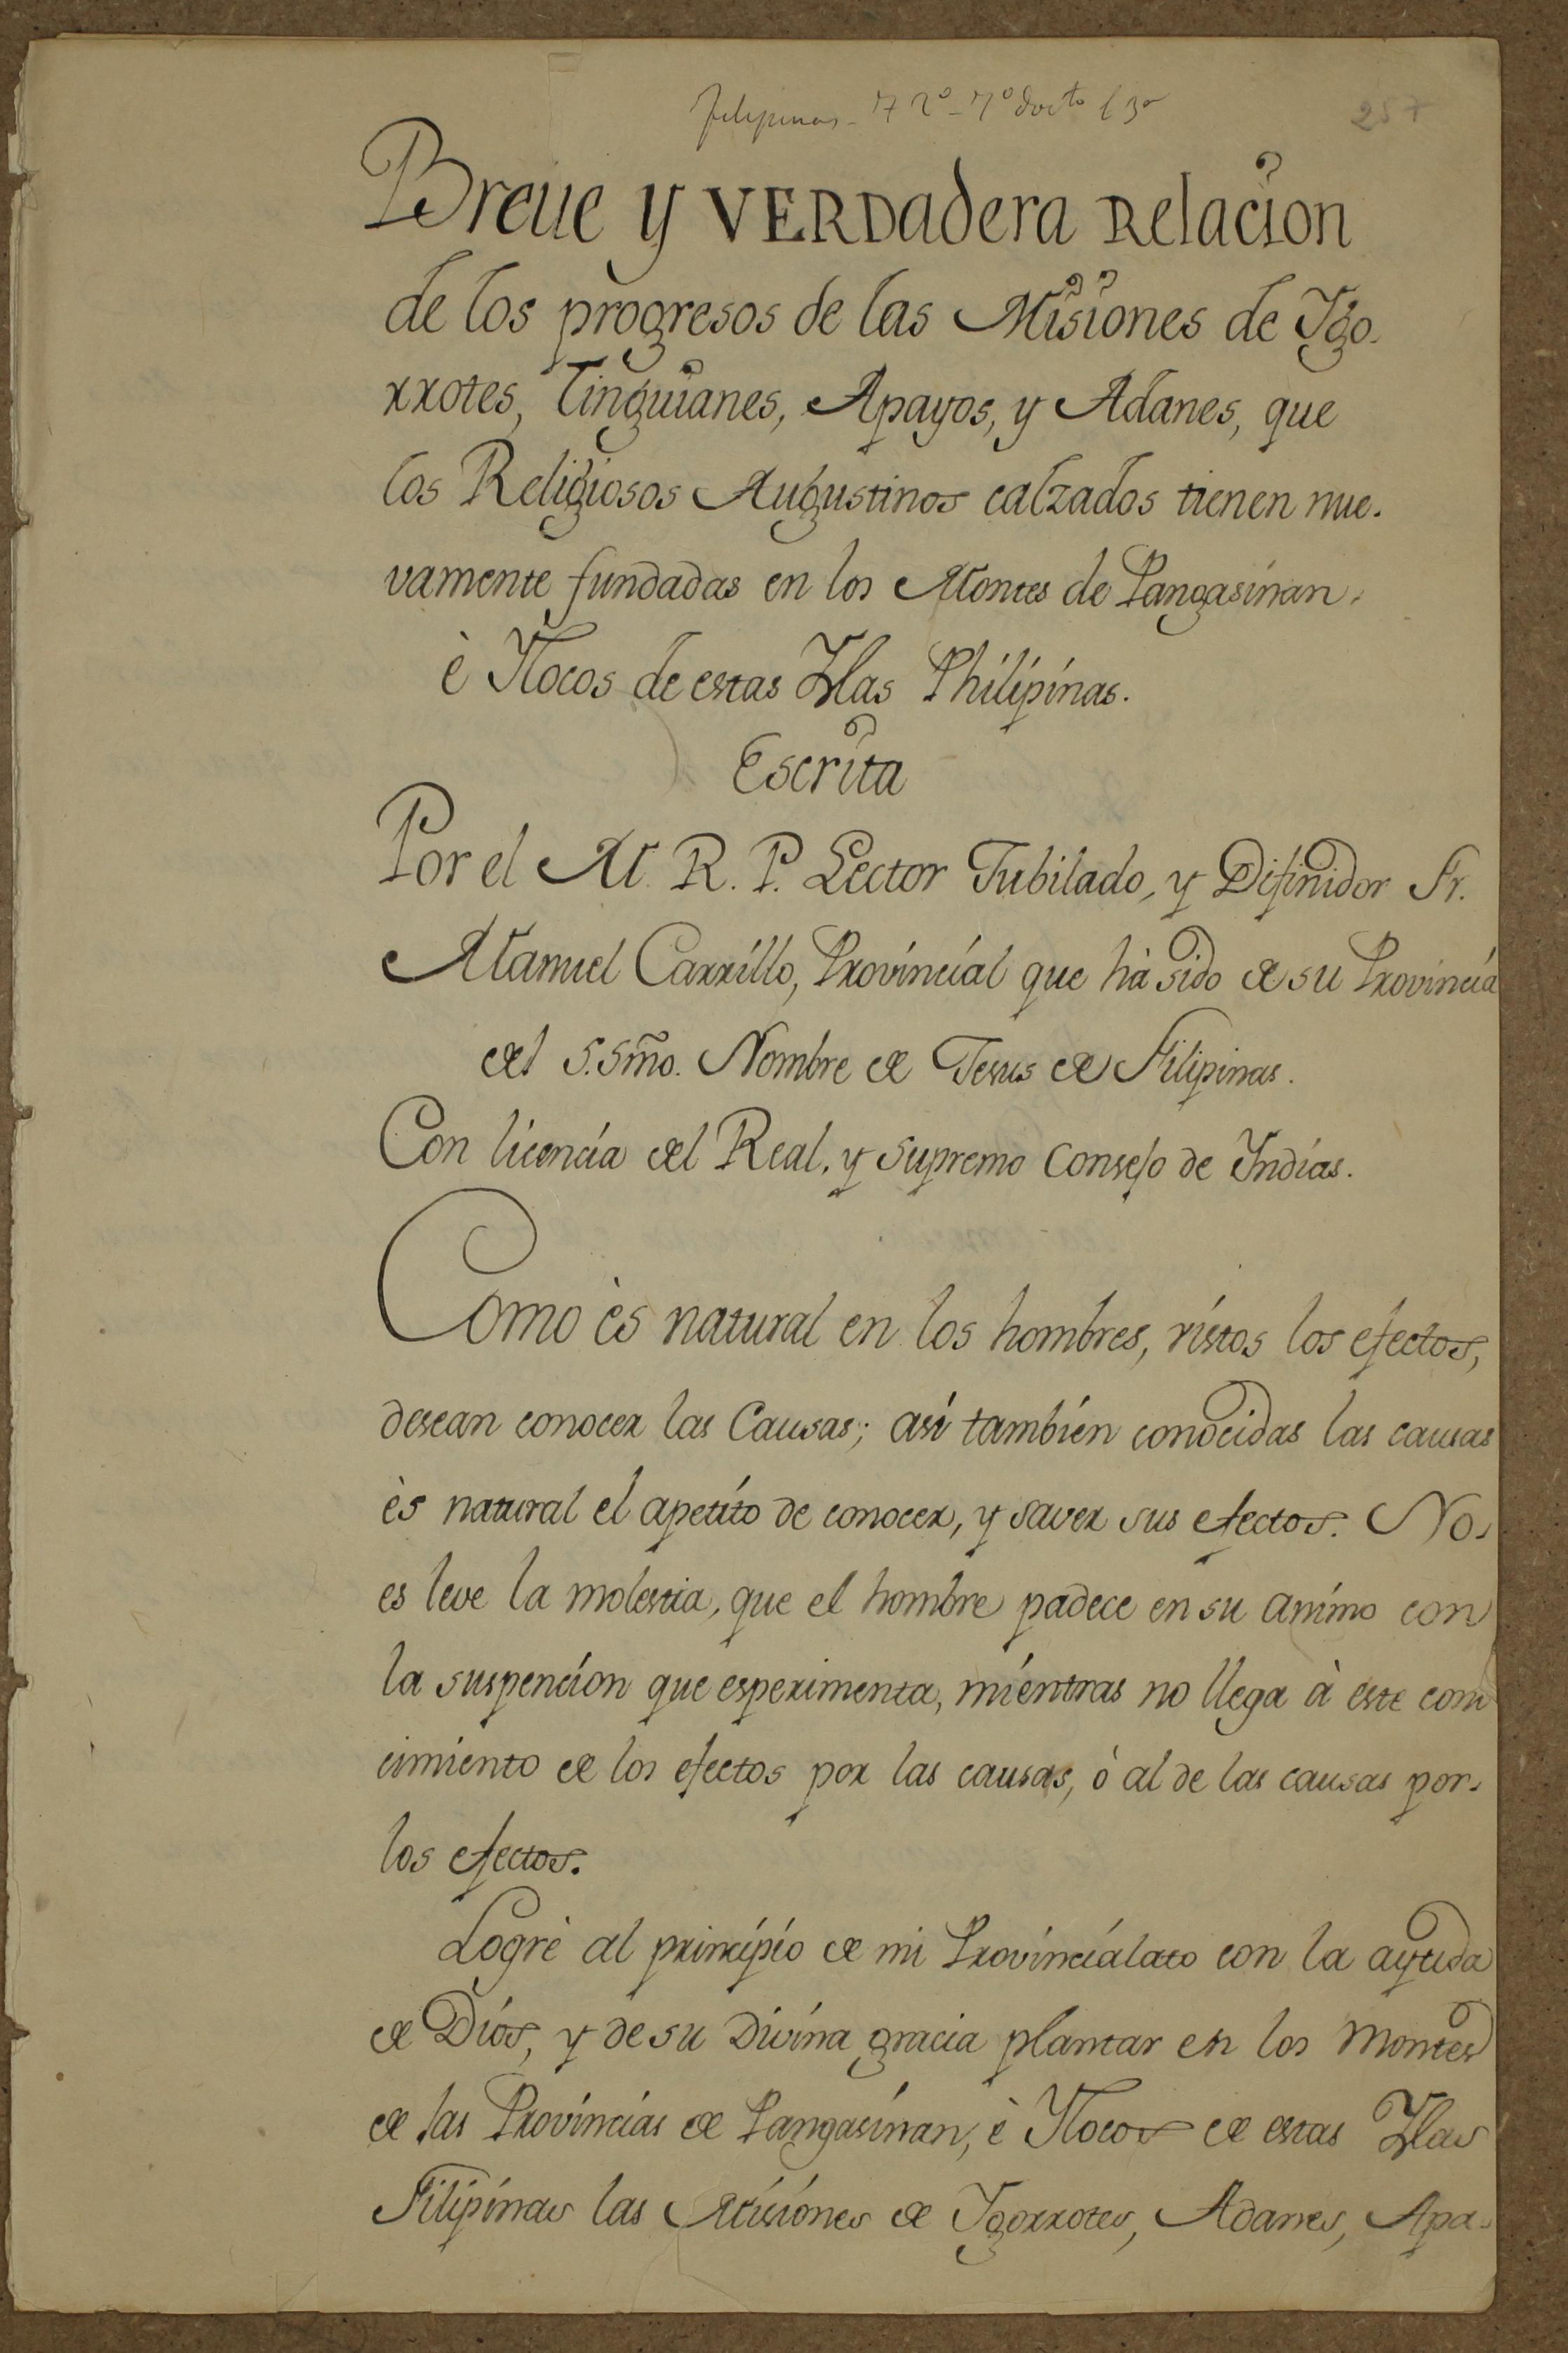 Filipinas - 7 2º - 7º docto
257
Breue y VERDadera Relacion
de los progresos de las Misiones de Ygo-
rrotes, Tinguianes, Apayos, y Adanes, que
los Religiosos Augustinos calzados tienen nue-
vamente fundadas en los Montes de Pangasinan,
è Ylocos de estas Yslas Philipinas.
Escrita
Por el M. R. P. Lector Jubilado, y Difinidor Fr.
Manuel Carrillo, Provincial que hà sido de su Provincia
del S.Smo. Nombre de Jesus de Filipinas.
Con licencia del Real, y Supremo Consejo de Yndias.
Como ès natural en los hombres, vistos los efectos,
desean conocer las Causas; asi tambien conocidas las causas
ès natural el apetito de conocer, y saver sus efectos. No
es leve la molestia, que el hombre padece en su animo con
la suspencion que esperimenta, mientras no llega à este cono
cimiento de los efectos por las causas, ò al de las causas por
los efectos.
Logrè al principio de mi Provincialato con la ayuda
de Dios, y de su Divina gracia plantar en los Montes
de las Provincias de Pangasinan, è Ylocos de estas Yslas
Filipinas las Misiones de Ygorrotes, Adanes, Apa-